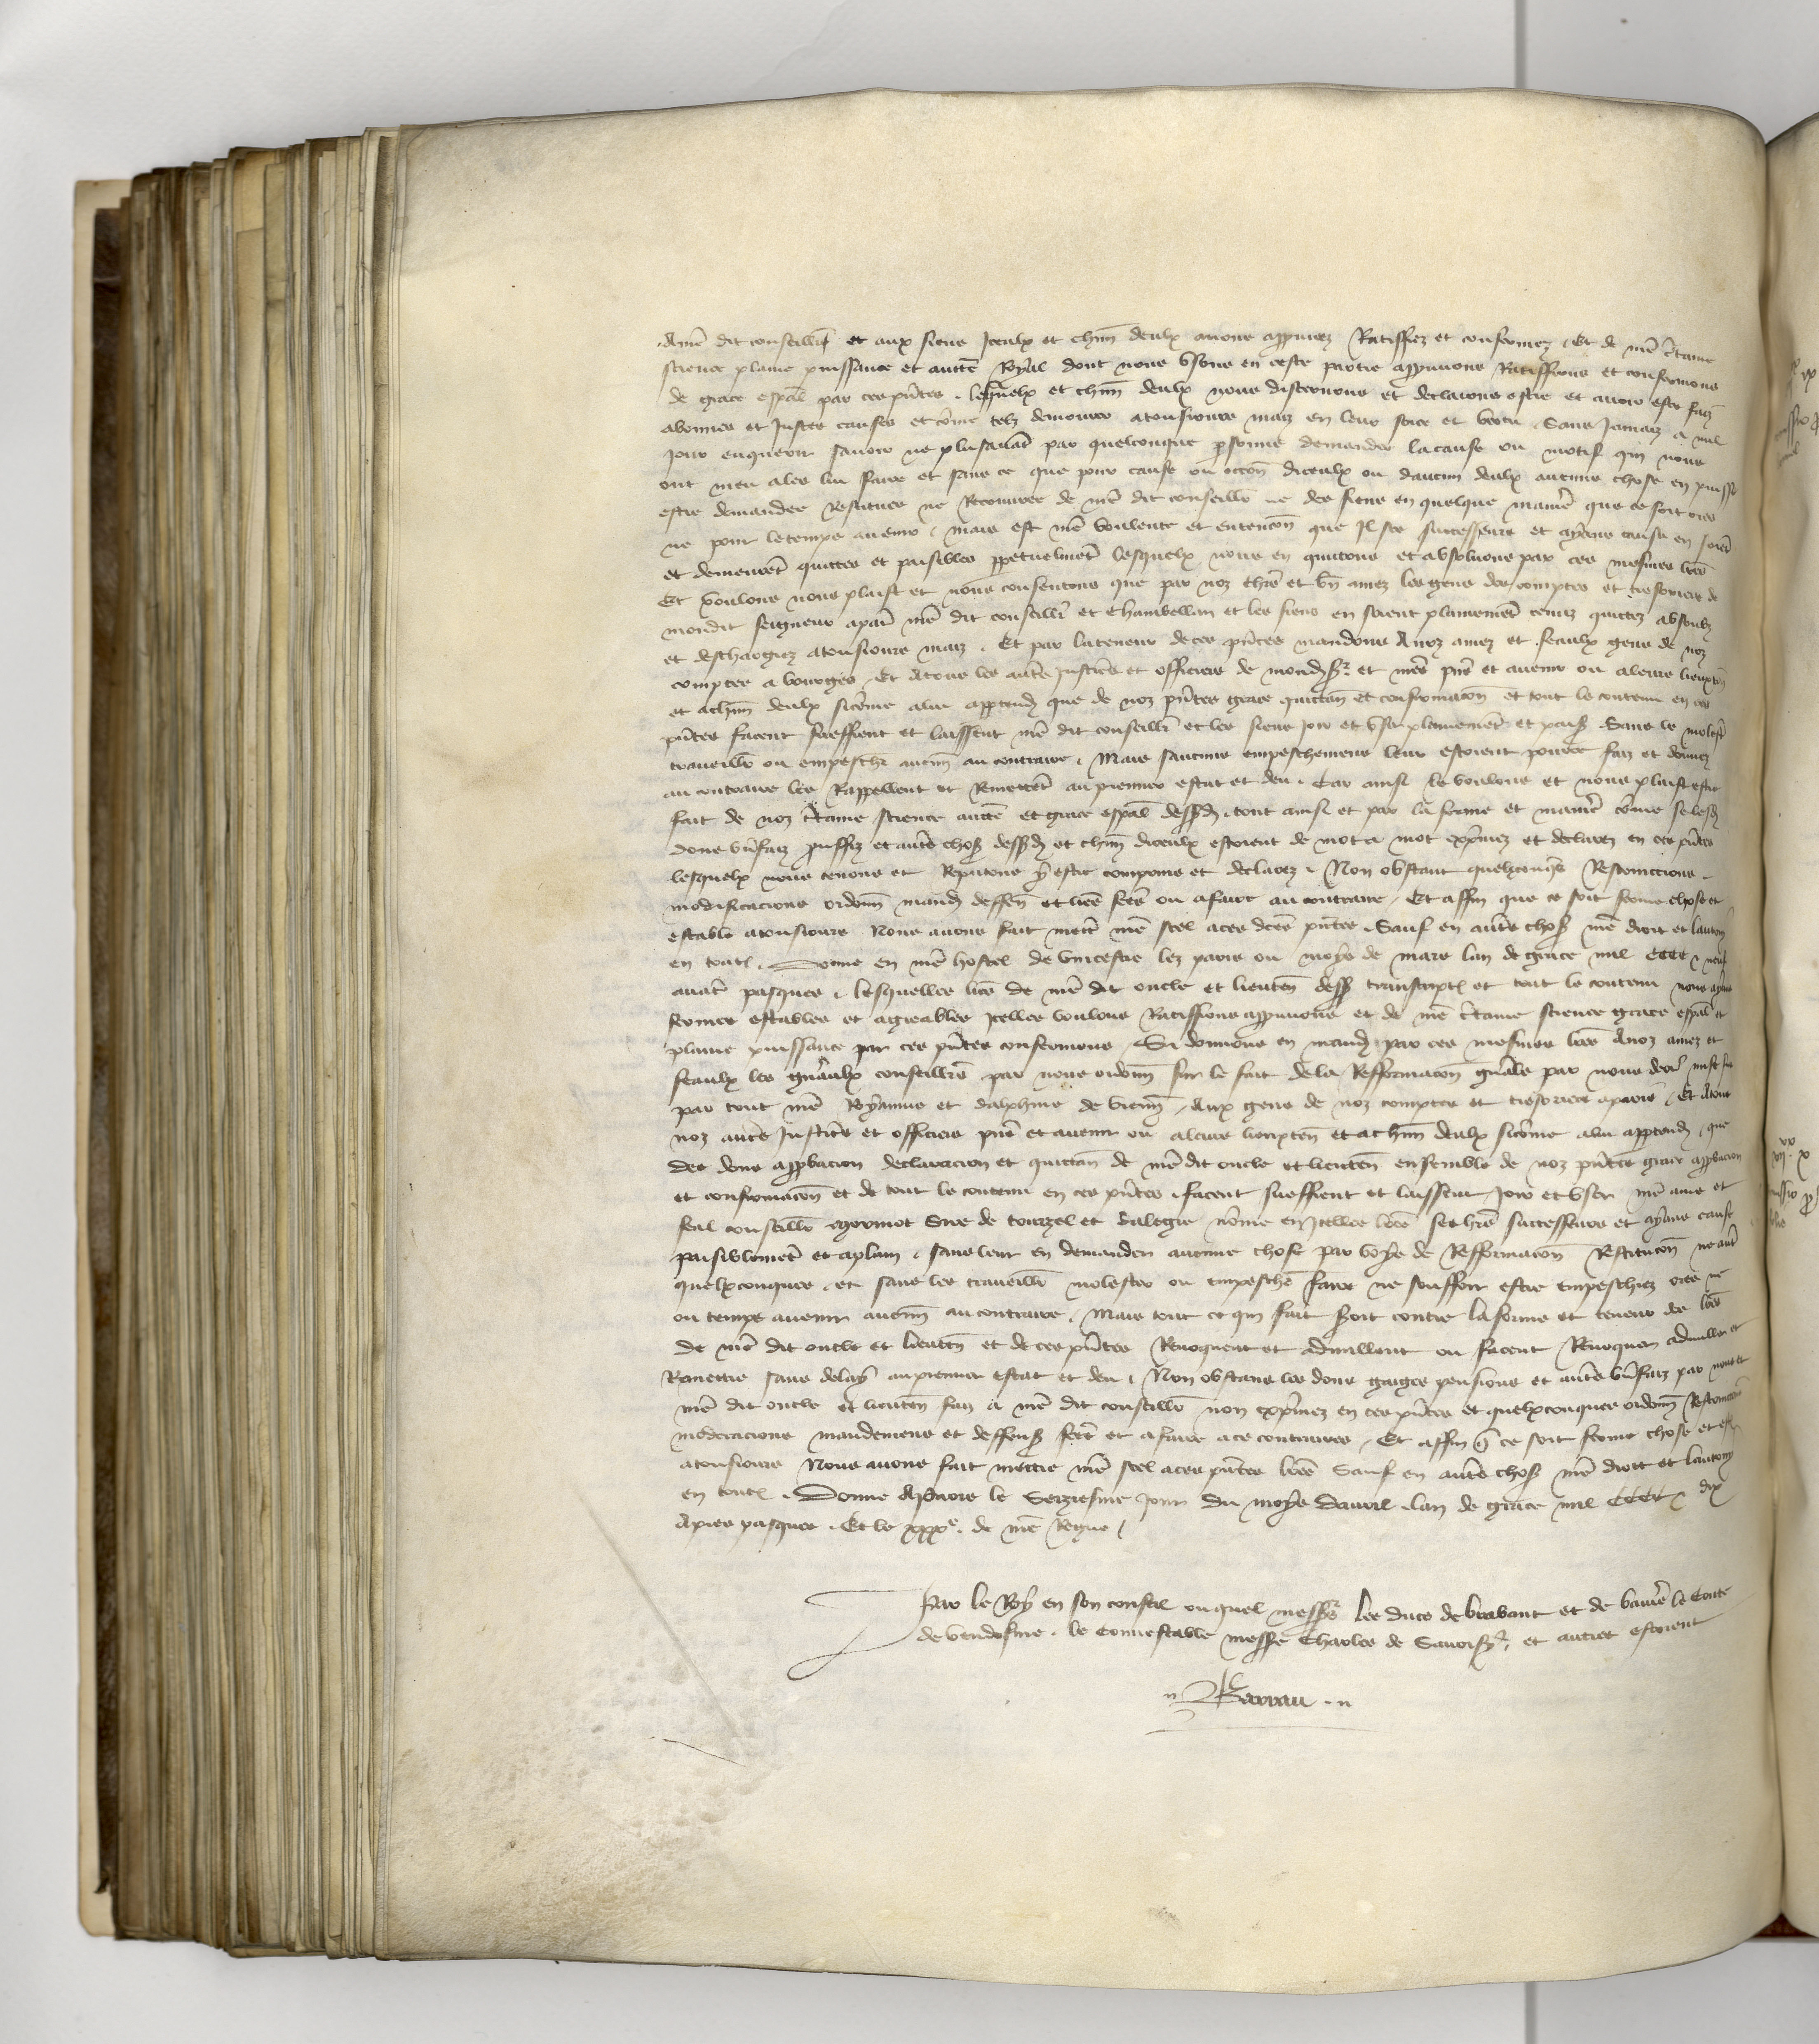 A nre dit conseiller et aux siens Iceulx et chun deulx avons approuvez Ratiffiez et confermez Et de nre ctaine
science plaine puissance et aucte Royal dont nous usons en ceste partie approuvons Ratiffions et confermons
de grace espal par ces pntes lesquelx et chun deulx nous discernons et declairons estre et avoir este faiz
a bonnes et Justes causes et come telz demourer a tousiours maiz en leur force et vertu Sans Jamaiz a nul
jour enquerir savoir ne plus avat par quelconque psonne demander la cause ou motif qui nous
ont meu a les lui faire et sans ce que pour cause ou occon diceulx ou daucun deulx aucune chose en puisse
estre demandee Restituee ne Recouvree de nre dit conseiller ne des siens en quelque maniere que ce soit ores
ne pour le temps avenir mais est nre voulente et entencon que Il ses successeurs et ayans cause en soiet
et demeuret quictes et paisibles ppetuelmet lesquelx nous en quictons et absolvons par ces mesmes lres
Et voulons nous plaist et nous consentons que par noz chrs et bn amez les gens des comptes et tresoriers de
mondit seigneur a paris nre dit conseiller et chambellan et les siens en soient plainemet tenuz quictez absoulz
et deschargiez a tousiours maiz Et par la teneur de ces pntes mandons A noz amez et feaulx gens de noz
comptes a bourges Et A tous les autres Justiciers et officiers de mondsr et nres pns et avenir ou a leurs lieuxten
et a chun deulx si come a lui apptendra que de noz pntes grace quictan et confirmacon et tout le contenu en ces
pntes facent sueffrent et laissent nre dit conseiller et les siens joir et user plainemet et paisi Sans le molest
traveiller ou empescher aucun au contraire Mais saucuns empeschemens leur estoient pource faiz et donnez
au contraire les Rappellent et Remectet au premier estat et deu Car ainsi le voulons et nous plaist estre
fait de noz ctaine science aucte et grace espal dessusd tout ainsi et par la forme et maniere come se lesd
dons bnfaiz prouffiz et autres choses dessusd et chun diceulx estoient de mot a mot exprimez et declarez en ces pntes
lesquelx nous tenons et Reputons y estre comprins et declarez Non obstant quelxconqs Restrinctions
modificacions ordonn mand deffen et lres fctes ou a faire au contraire Et affin que ce soit ferme chose et
estable a tousiours Nous avons fait mectre nre scel a ces dces pntes Sauf en autres choses nre droit et lautruy
en toutes Donne en nre hostel de vincestre lez paris ou moys de mars lan de grace mil CCCC et neuf
avat pasques lesquelles lres de nre dit oncle et lieuten dess transcriptes et tout le contenu nous ayans
fermes estables et agreables Icelles voulons Ratiffions approuvons et de nre ctaine science grace espal et
plaine puissance par ces pntes confermons Si donnons en mand par ces mesmes lres A noz amez et
feaulx les gnaulx conseillers par nous ordonn sur le fait de la Refformacon gnale par nous
par tout nre Royaume et dalphine de vienn Aux gens de noz comptes et tresoriers a paris Et A tous
noz autres Justiciers et officiers pns et avenir ou a leurs lieuxten et a chun deulx si come a lui apptendra que
des dons approbacion declaracion et quictan de nre dit oncle et lieuten ensemble de noz pntes grace approbacion
et confirmacon et de tout le contenu en ces pntes facent sueffrent et laissent Joir et user nre ame et
feal conseiller Morinot Sire de tourzel et dalegre nome en Icelles lres ses hers successeurs et ayans cause
paisiblemet et a plain sans leur en demander aucune chose par voye de Refformacon Restitucon ne autr
quelxconques et sans les traveiller molester ou empescher faire ne souffrir estre empeschiez ores ne
ou temps avenir aucun au contraire Mais tout ce qui fait seroit contre la forme et teneur des lres
de nre dit oncle et lieuten et de ces pntes Revoquent et adnullent ou facent Revoquer adnuller et
Remettre sans delay au premier estat et deu Non obstans les dons gaiges pensions et autres bnfaiz par nous et
nre dit oncle et lieuten faiz a nre dit conseiller non exprimez en ces pntes et quelxconques ordonn Restrinctions
moderacions mandemens et deffenses fctes et a faire a ce contraires Et affin q ce soit ferme chose et estable
a tousiours Nous avons fait mettre nre scel a ces pntes lres Sauf en autres choses nre droit et lautruy
en toutes Donne A paris le Seziesme jour du moys davril lan de grace mil CCCC et dix
Apres pasques Et le xxxe de nre Regne
Par le Roy en son conseil ouquel messrs les ducs de brabant et de baviere le Conte
de vendosme le Connestable messe Charles de Savoisy et autres estoient
Barrau